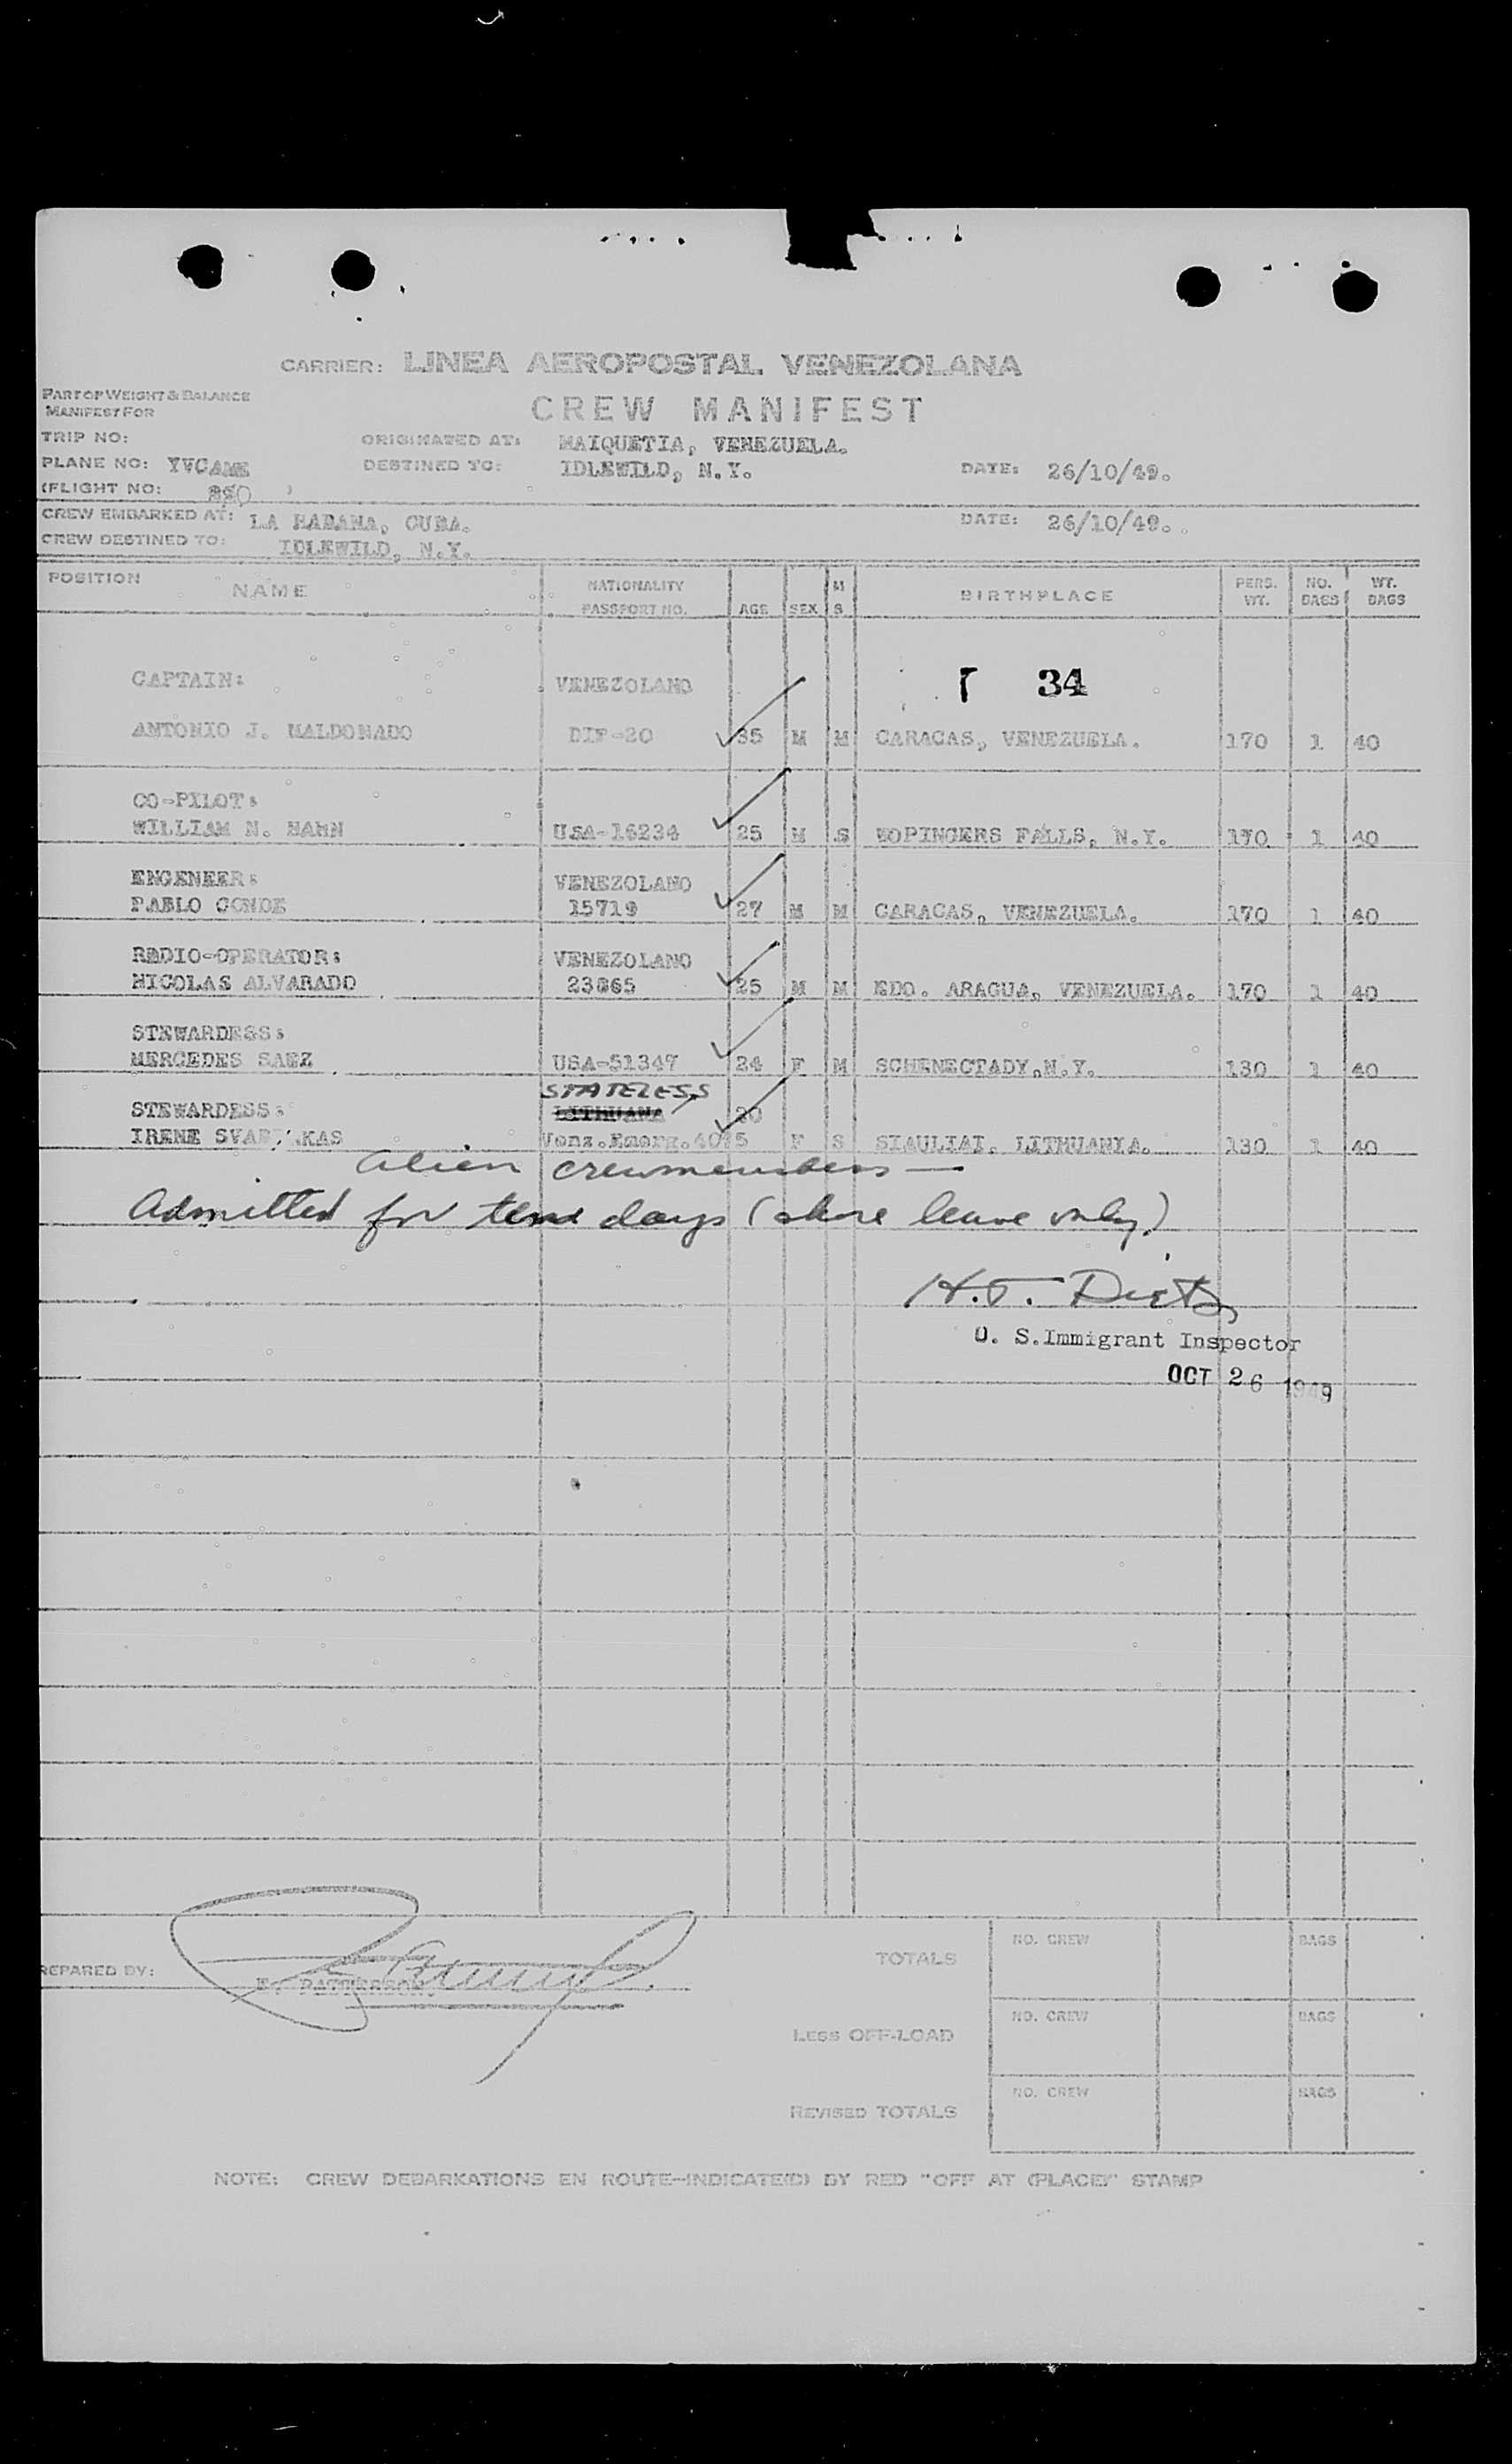 CARRIER: LINEA AEROPOSTAL VENEZOLANA
PART OF WEIGHT & BALANCE
MANIFEST FOR
CREW MANIFEST
TRIP NO:
ORIGINATED AT: MAIQUETIA, VENEZUELA.
PLANE NO: YVCAME
DESTINED TO: IDLEWILD, N.Y.
DATE: 26/10/49.
(FLIGHT NO: )
CREW EMBARKED AT: LA HABANA, CUBA.
DATE: 26/10/49.
CREW DESTINED TO: IDLEWILD, N.Y.
POSITION NAME NATIONALITY PASSPORT NO. AGE SEX M S BIRTHPLACE PERS. WT. NO. BAGS WT. BAGS
CAPTAIN: VENEZOLANO 34
ANTONIO J. MALDONADO DIP-20 35 M M CARACAS, VENEZUELA. 170 1 40
CO-PILOT:
WILLIAM N. HAHN USA-16234 25 M S WOPINGERS FALLS, N.Y. 170 1 40
ENGENEER: VENEZOLANO
PABLO CONDE 15719 27 M M CARACAS, VENEZUELA. 170 1 40
RADIO-OPERATOR: VENEZOLANO
NICOLAS ALVARADO 23065 25 M M EDO. ARAGUA, VENEZUELA. 170 1 40
STEWARDESS:
MERCEDES SAEZ USA-51347 24 F M SCHENECTADY, N.Y. 130 1 40
STATELESS
STEWARDESS: LITHUANA 20
IRENE Venz.Emerg.4075 F S SIAULIAI, LITHUANIA. 130 1 40
Alien crewmembers —
Admitted for ten days (shore leave only)
H.T. Dietz
U. S. Immigrant Inspector
OCT 26 1949
PREPARED BY: E. PATTERSON.
TOTALS NO. CREW BAGS
LESS OFF-LOAD NO. CREW BAGS
REVISED TOTALS NO. CREW BAGS
NOTE: CREW DEBARKATIONS EN ROUTE—INDICATE(D) BY RED "OFF AT (PLACE)" STAMP